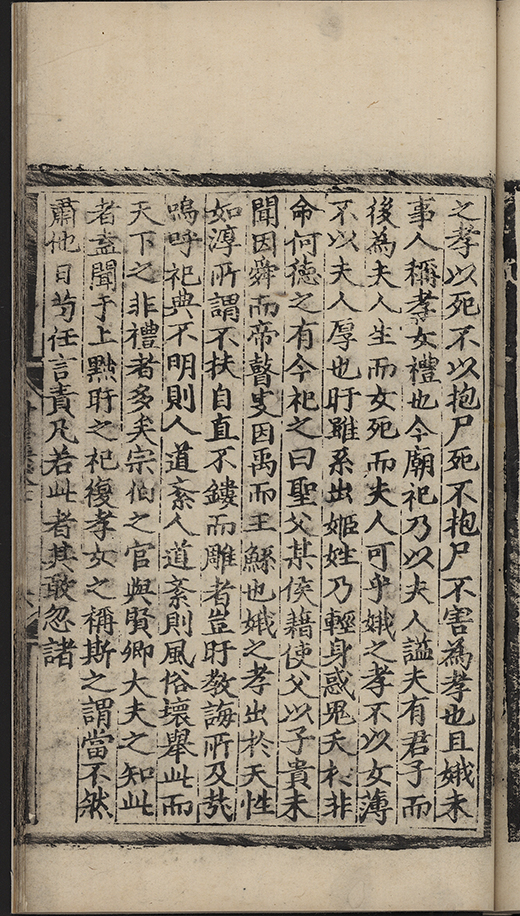 之孝以死不以抱尸死不抱尸不害為孝也且娥未
事人稱孝女禮也今廟祀乃以夫人謚夫有君子而
後為夫人生而女死而夫人可乎娥之孝不以女薄
不以夫人厚也盱雖系出姬姓乃輕身惑鬼夭於非
命何德之有今祀之曰聖父某侯藉使父以子貴未
聞因舜而帝瞽叟因禹而王鯀也娥之孝出於天性
如淳所謂不扶自直不鏤而雕者豈盱教誨所及㢤
嗚呼祀典不明則人道紊人道紊則風俗壞舉此而
天下之非禮者多矣宗伯之官與賢卿大夫之知此
者盍聞于上黜盱之祀復孝女之稱斯之謂當不然
肅他日苟任言責凡若此者其敢忽諸